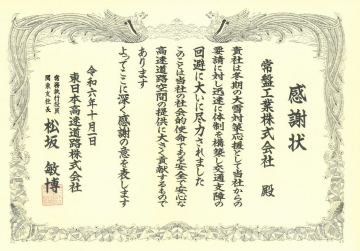 感謝状
常盤工業株式会社 殿
貴社は冬期の大雪対策応援として当社からの
要請に対し迅速に体制を構築し交通支障の
回避に大いに尽力されました
このことは当社の社会的使命である安全で安心な
高速道路空間の提供に大きく貢献するもので
あります
よってここに深く感謝の意を表します
令和六年十月一日
東日本高速道路株式会社
常務執行役員
関東支社長 松坂敏博